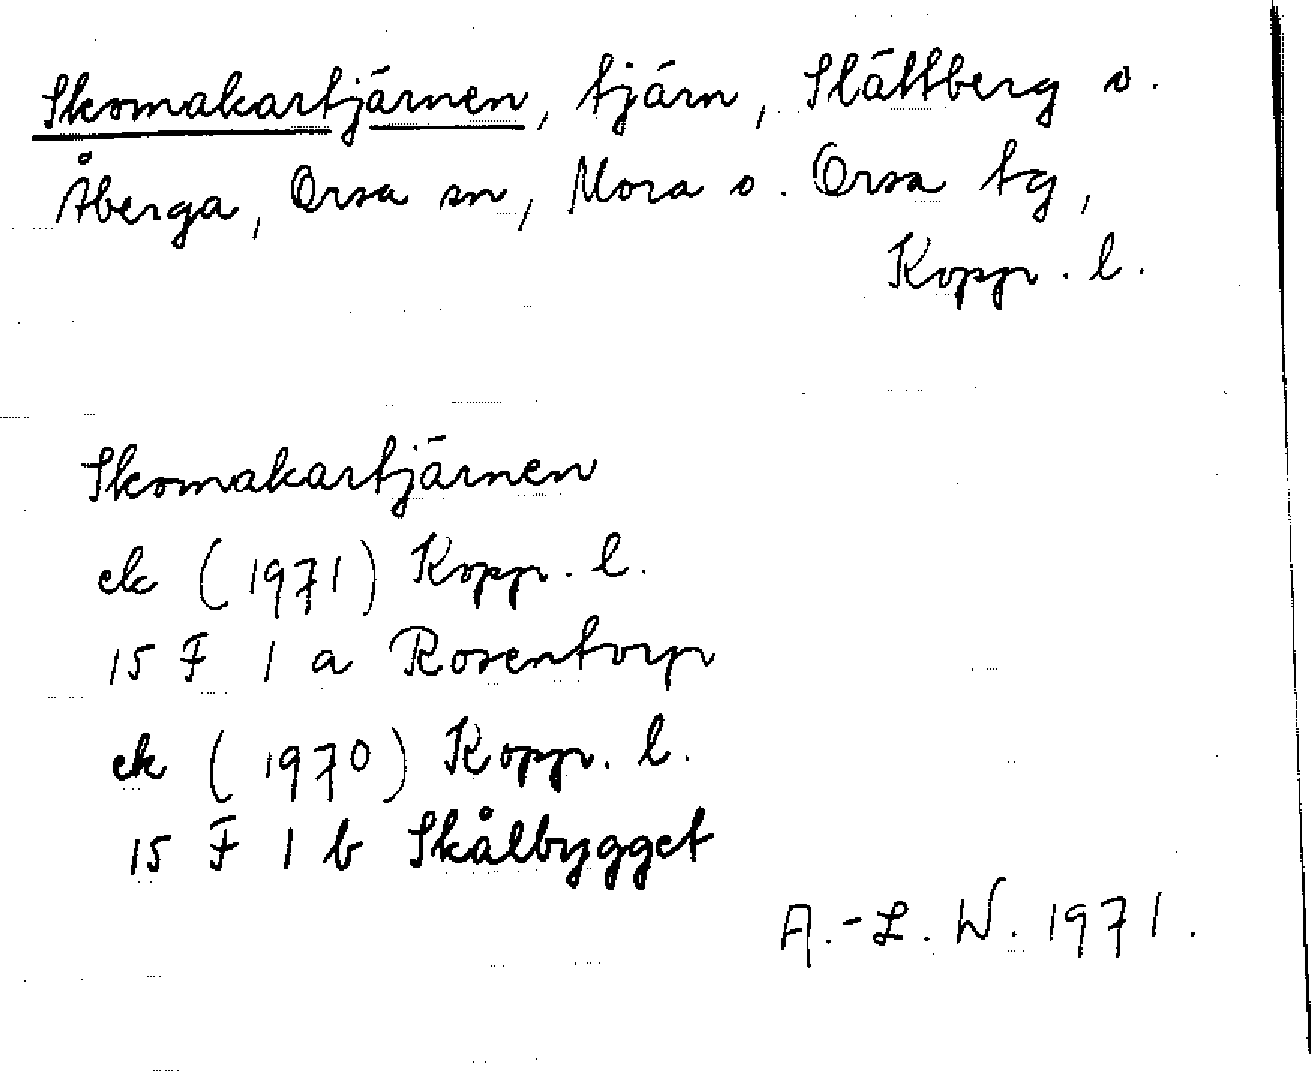 Skomakartjärnen, tjärn, Slättberg o.
Åberga, Orsa sn, Mora o. Orsa tg,
Kopp. l.
Skomakartjärnen
ek (1971) Kopp. l.
15 F 1 a Rosentorp
ek (1970) Kopp. l.
15 F 1 b Skålbygget
A.-L. W. 1971.